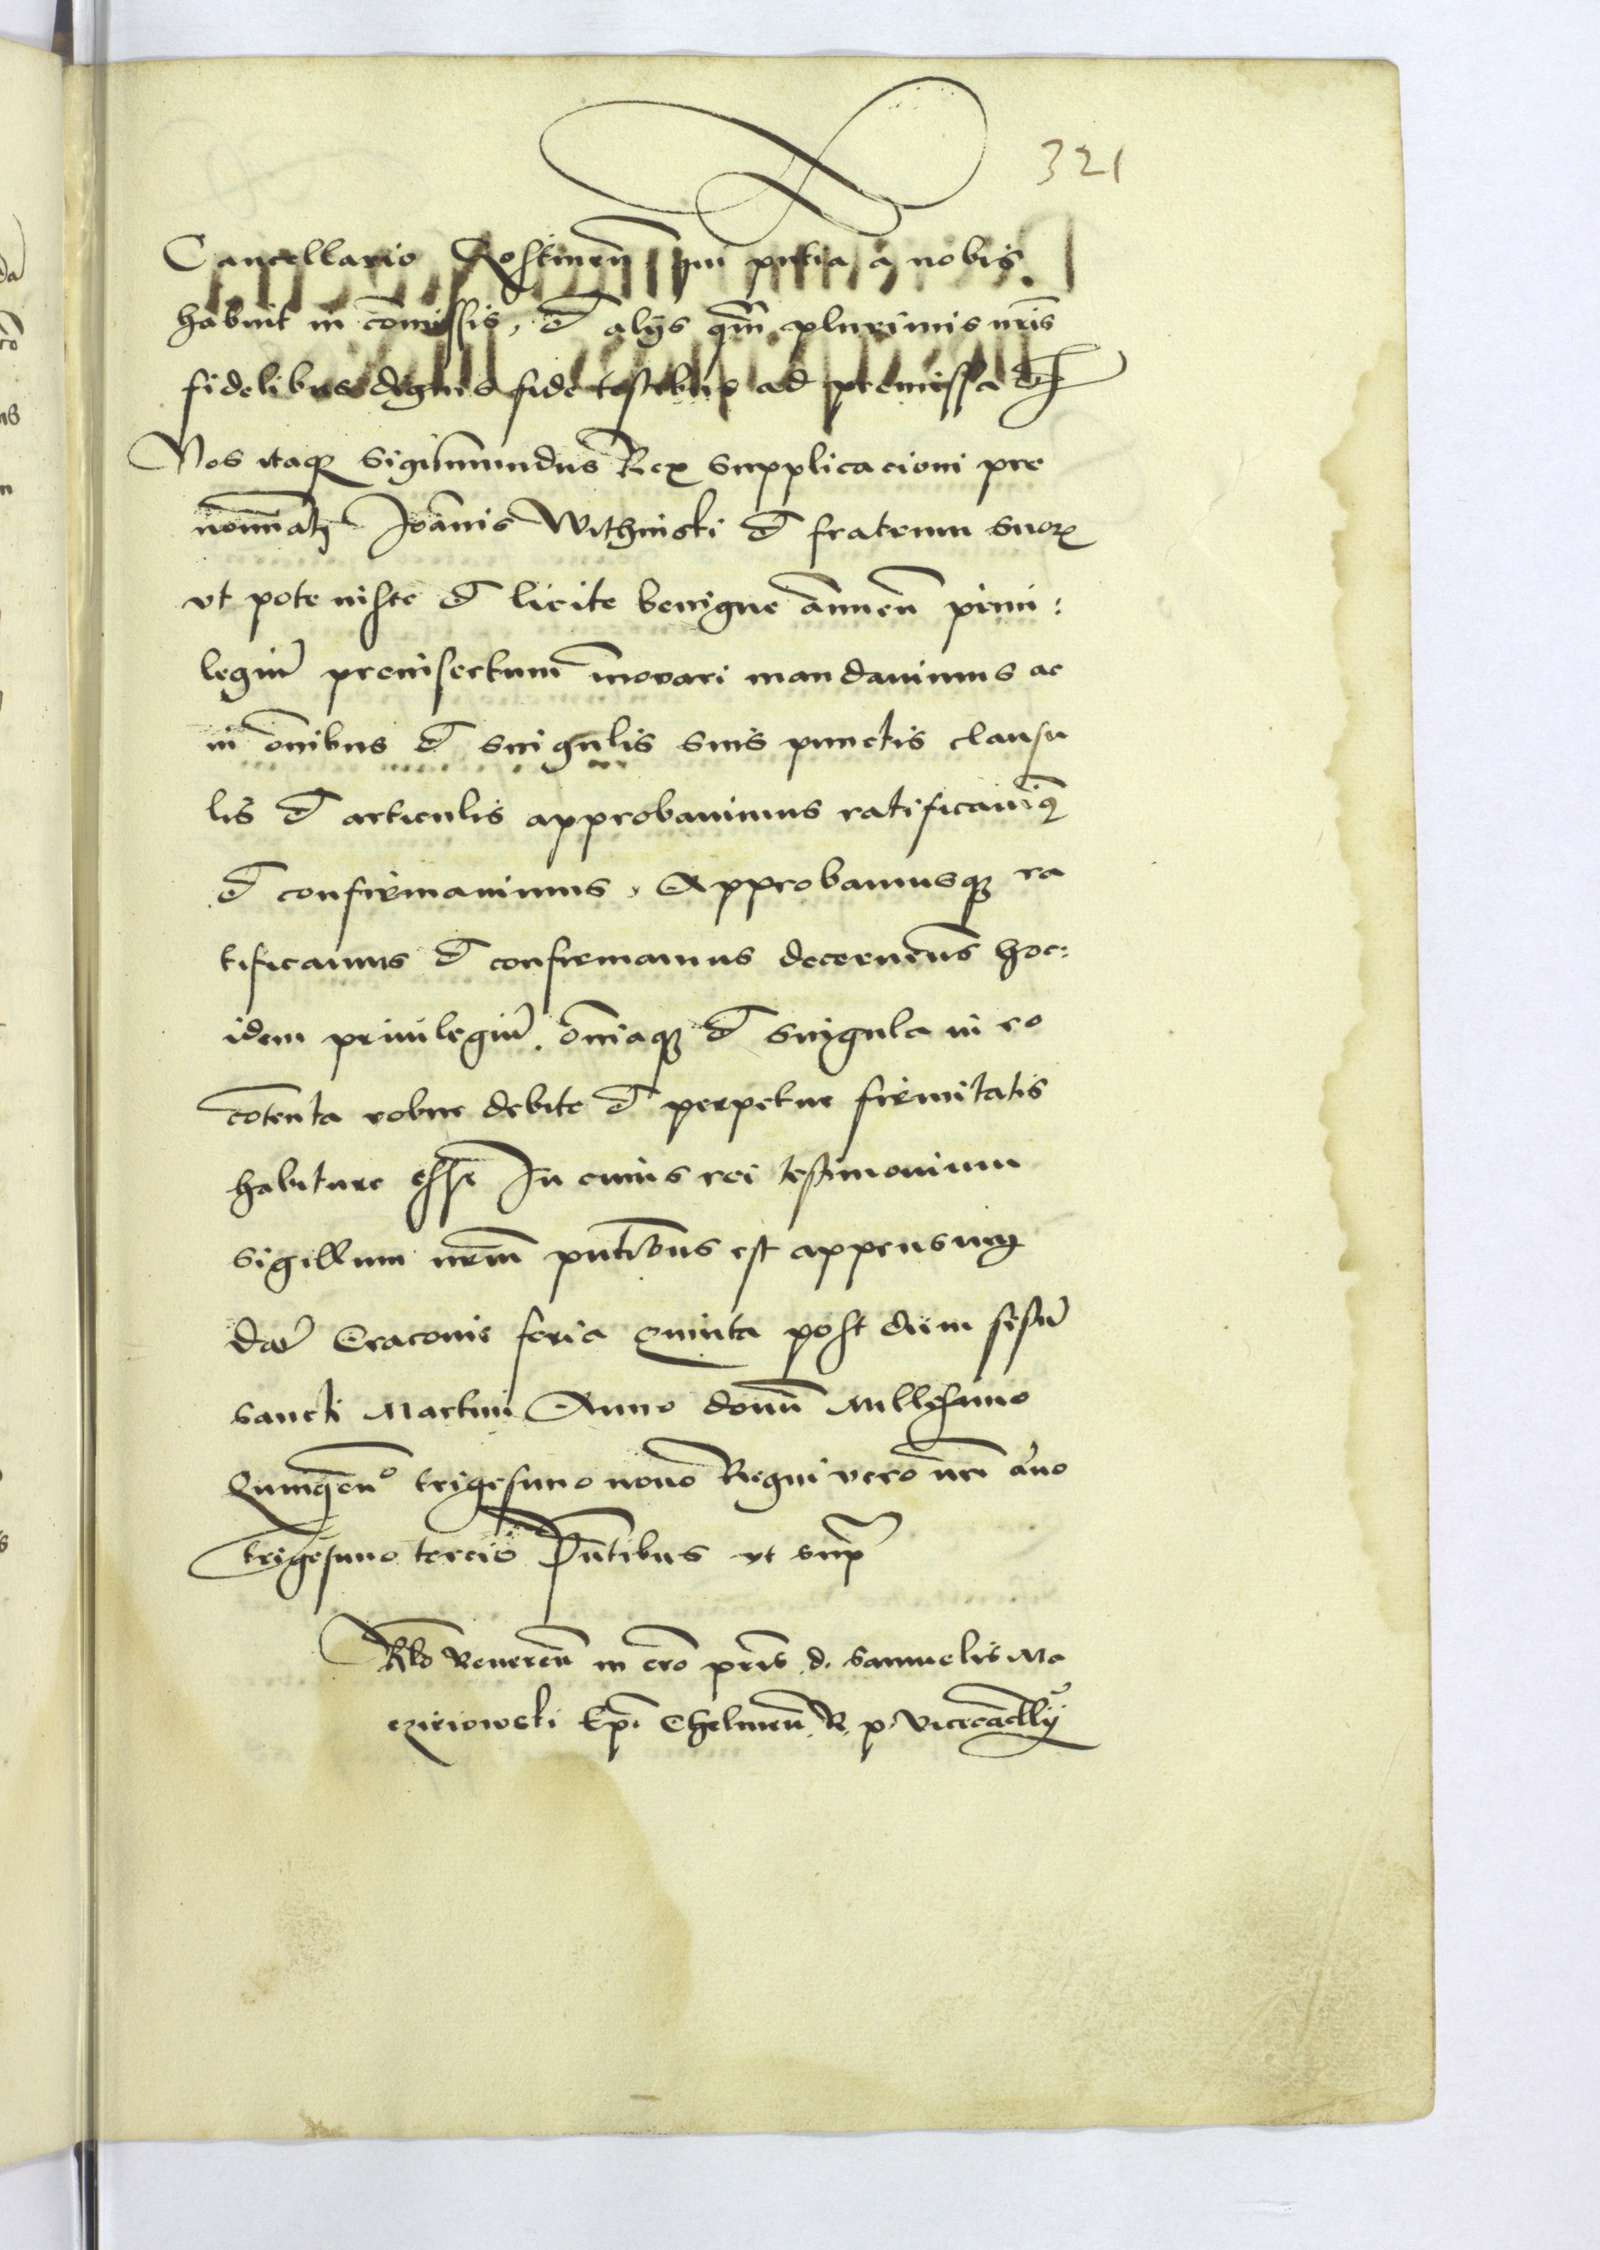 321
Cancellario Gostinen̄ qui pn̄tia a nobis
habuit in com̄issis, et alijs qm̄ plurimis nr̄is
fidelibus dignis fide testibus ad premissa etc̄
Nos itaqꝫ Sigismundus Rex supplicacioni pre
nominati Joānis Withuiski et fratrum suoꝝ
vt pote iuste et licite benigne annuen̄ priui:
legiu̅ preinsertum innouari mandauimus ac
in om̄ibus et singulis suis punctis clausu
lis et articulis approbauimus ratificauimꝰ
et confirmauimus, Approbamusqꝫ ra
tificamus et confirmamus decernen̄s hoc:
idem priuilegiu̅. om̄iaqꝫ et singula in eo
cōtenta robur debite et perpetue firmitatis
habiture esse In cuius rei testimonium
sigillum nr̄um pn̄tibus est appensum
dat̄ Cracouie feria quinta post diem festu̅
sancti Martini Anno domīni Millesimo
Quingen̄o trigesimo nono Regni vero nr̄i ān̄o
trigesimo tercio Pn̄tibus vt sup̄
Rl̄o Reueren̄ in cr̄o pr̄is d. Samuelis Ma
czieiowski Ep̄i Chelmen̄. R. p. Vicecancllrij